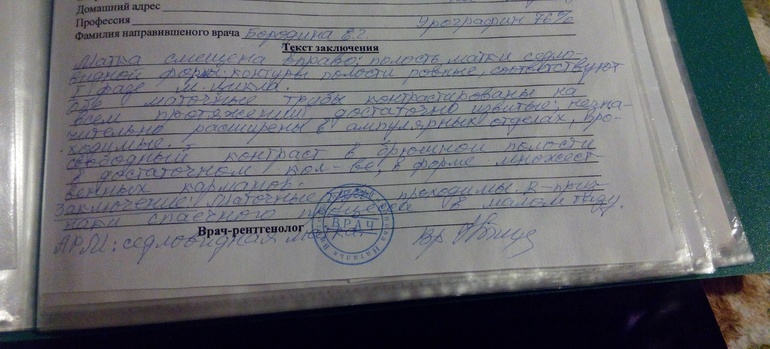 Домашний адрес
Профессия Урографин 76%
Фамилия направившего врача Бородина Е.г.
Текст заключения
Матка смещена вправо; полость матки седло-
видной формы; контуры полости ровные, соответствуют
I фазе м. цикла.
Обе маточные трубы контрастированы на
всем протяжении, достаточно извитые; незна-
чительно расширены в ампулярных отделах, про-
ходимые.
Свободный контраст в брюшной полости
в достаточном кол-ве, в форме множест-
венных карманов.
Заключение: Маточные трубы проходимы. R-приз-
наки спаечного в малом тазу.
Врач-рентгенолог ВРАЧ Вр
АРМ: седловидная